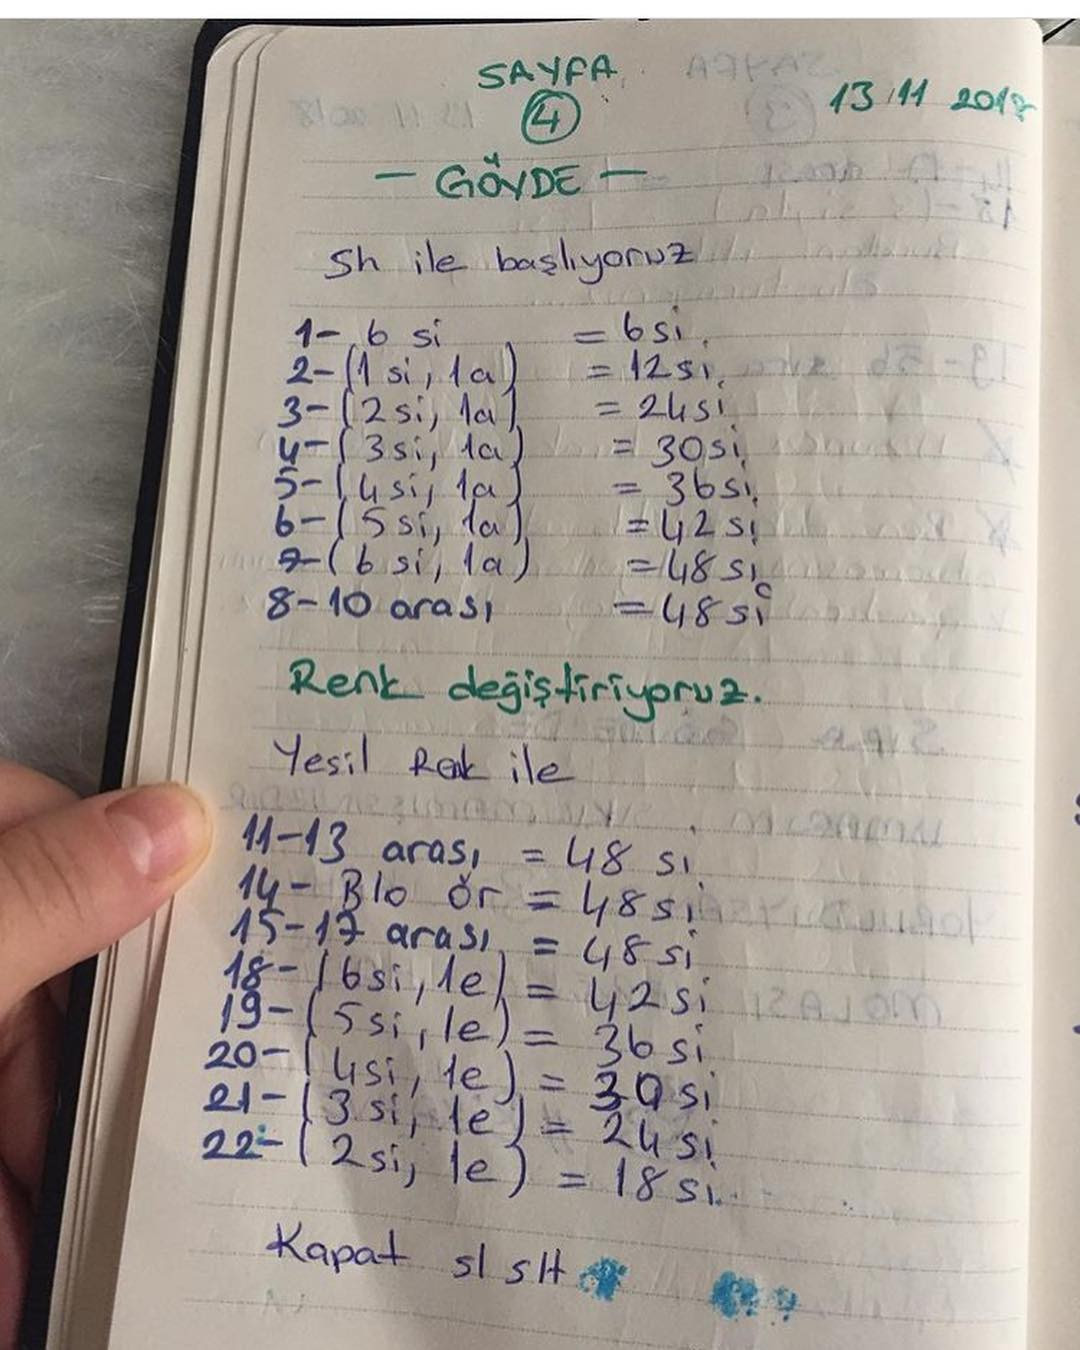 SAYFA
4
13 11 2018
- GÖVDE -
Sh ile başlıyoruz
1- 6 si = 6 si.
2- (1 si, 1a) = 12 si.
3- (2 si, 1a) = 24 si
4- (3 si, 1a) = 30 si
5- (4 si, 1a) = 36 si.
6- (5 si, 1a) = 42 si
7- (6 si, 1a) = 48 si
8-10 arası = 48 si
Renk değiştiriyoruz.
Yesil Renk ile
11-13 arası = 48 si
14- Blo ör = 48 si
15-17 arası = 48 si
18- (6 si, 1e) = 42 si
19- (5 si, 1e) = 36 si
20- (4 si, 1e) = 30 si
21- (3 si, 1e) = 24 si
22- (2 si, 1e) = 18 si.
Kapat sı sH